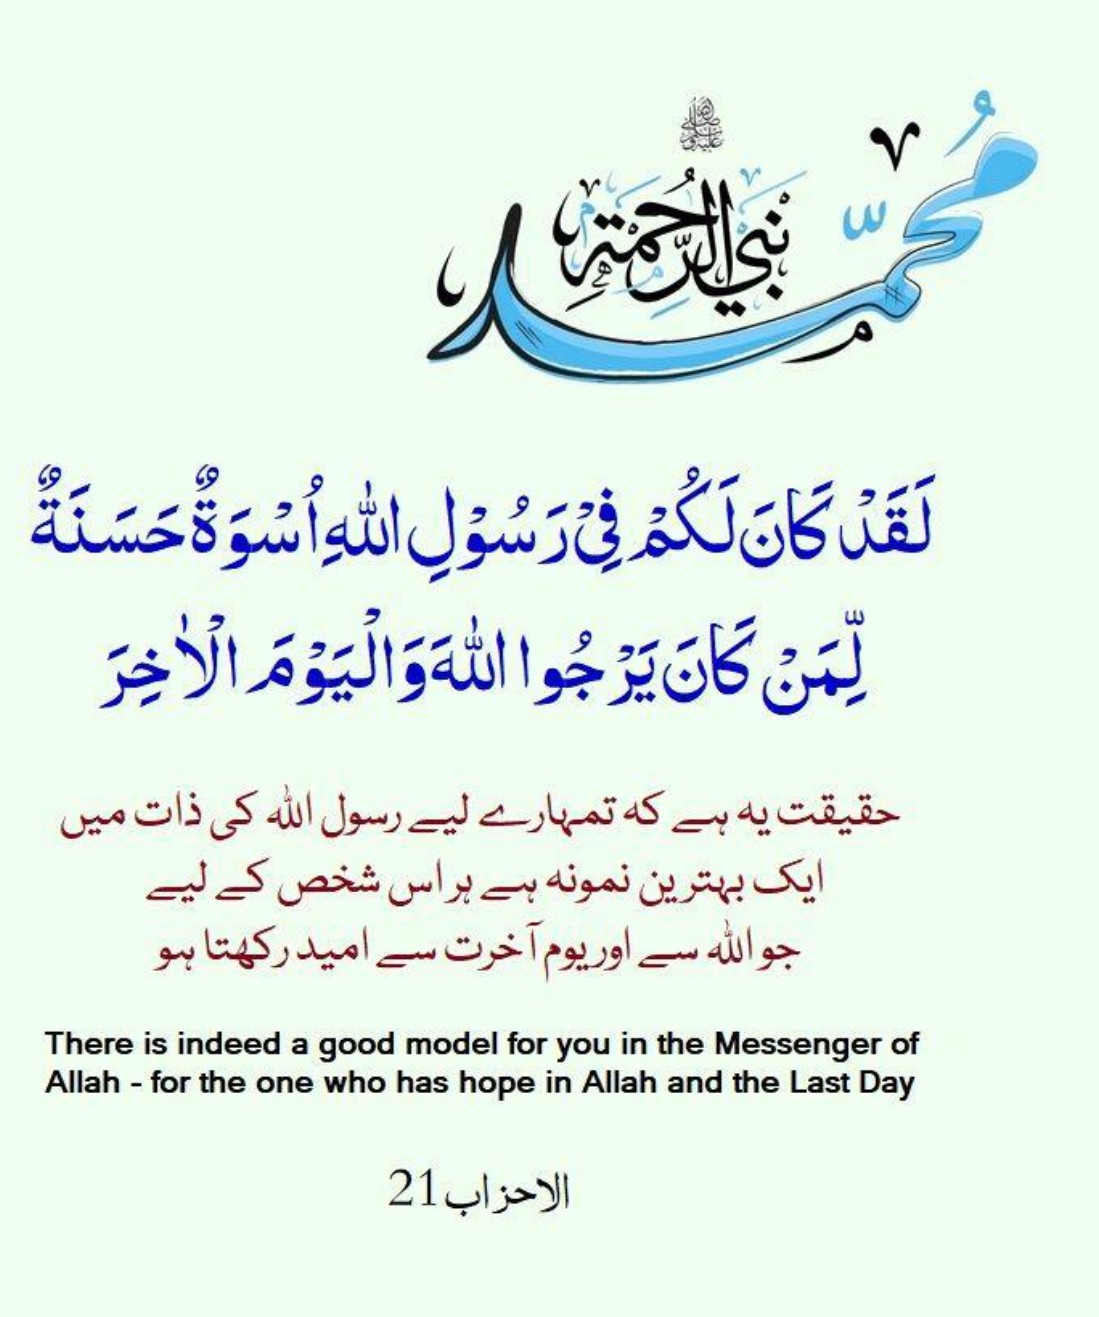 صلى الله عليه وسلم
محمد
نبي الرحمته
لَقَدْ كَانَ لَكُمْ فِيْ رَسُوْلِ اللّٰهِ اُسْوَةٌ حَسَنَةٌ
لِّمَنْ كَانَ يَرْجُوا اللّٰهَ وَالْيَوْمَ الْاٰخِرَ
حقیقت یہ ہے کہ تمہارے لیے رسول اللہ کی ذات میں
ایک بہترین نمونہ ہے ہر اس شخص کے لیے
جو اللہ سے اور یوم آخرت سے امید رکھتا ہو
There is indeed a good model for you in the Messenger of
Allah - for the one who has hope in Allah and the Last Day
الاحزاب 21